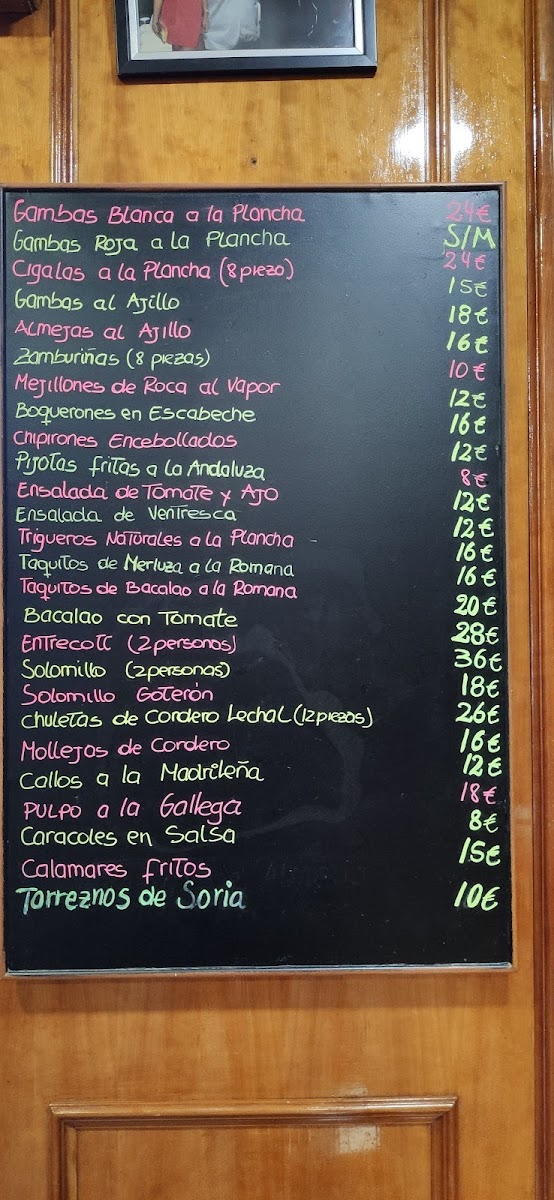 Gambas Blanca a la Plancha 24€
Gambas Roja a la Plancha S/M
Cigalas a la Plancha (8 piezo) 24€
Gambas al Ajillo 15€
Almejas al Ajillo 18€
Zamburiñas (8 piezas) 16€
Mejillones de Roca al Vapor 10€
Boquerones en Escabeche 12€
Chipirones Encebollados 16€
Pijotas fritas a la Andaluza 12€
Ensalada de Tomate y Ajo 8€
Ensalada de Ventresca 12€
Trigueros Naturales a la Plancha 12€
Taquitos de Merluza a la Romana 16€
Taquitos de Bacalao a la Romana 16€
Bacalao con Tomate 20€
Entrecott (2 personas) 28€
Solomillo (2 personas) 36€
Solomillo Goterón 18€
Chuletas de Cordero Lechal (12 piezas) 26€
Mollejas de Cordero 16€
Callos a la Madrileña 12€
Pulpo a la Gallega 18€
Caracoles en Salsa 8€
Calamares fritos 15€
Torreznos de Soria 10€